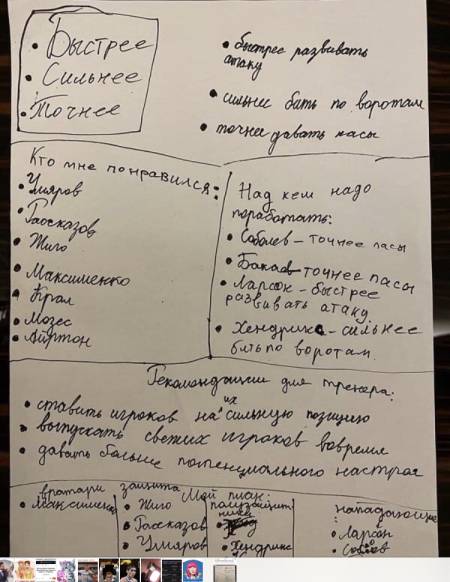 • Быстрее
• Сильнее
• Точнее
• быстрее развивать
атаку
• сильнее бить по воротам
• точнее давать пасы
Кто мне понравился:
• Умяров
• Гаосказов
• Жиго
• Максименко
• Крал
• Мозес
• Айртон
Над кем надо
поработать:
• Соболев – точнее пасы
• Бакаев – точнее пасы
• Ларсон – быстрее
развивать атаку
• Хендрикс – сильнее
бить по воротам.
Рекомендации для тренера:
• ставить игроков на их сильную позицию
• выпускать свежих игроков вовремя
• давать больше потенциального настроя
Мой план:
вратари
• Максименко
защита
• Жиго
• Гаосказов
• Умяров
полузащит
ники
• Хендрикс
нападающие:
• Ларсон
• Соболев